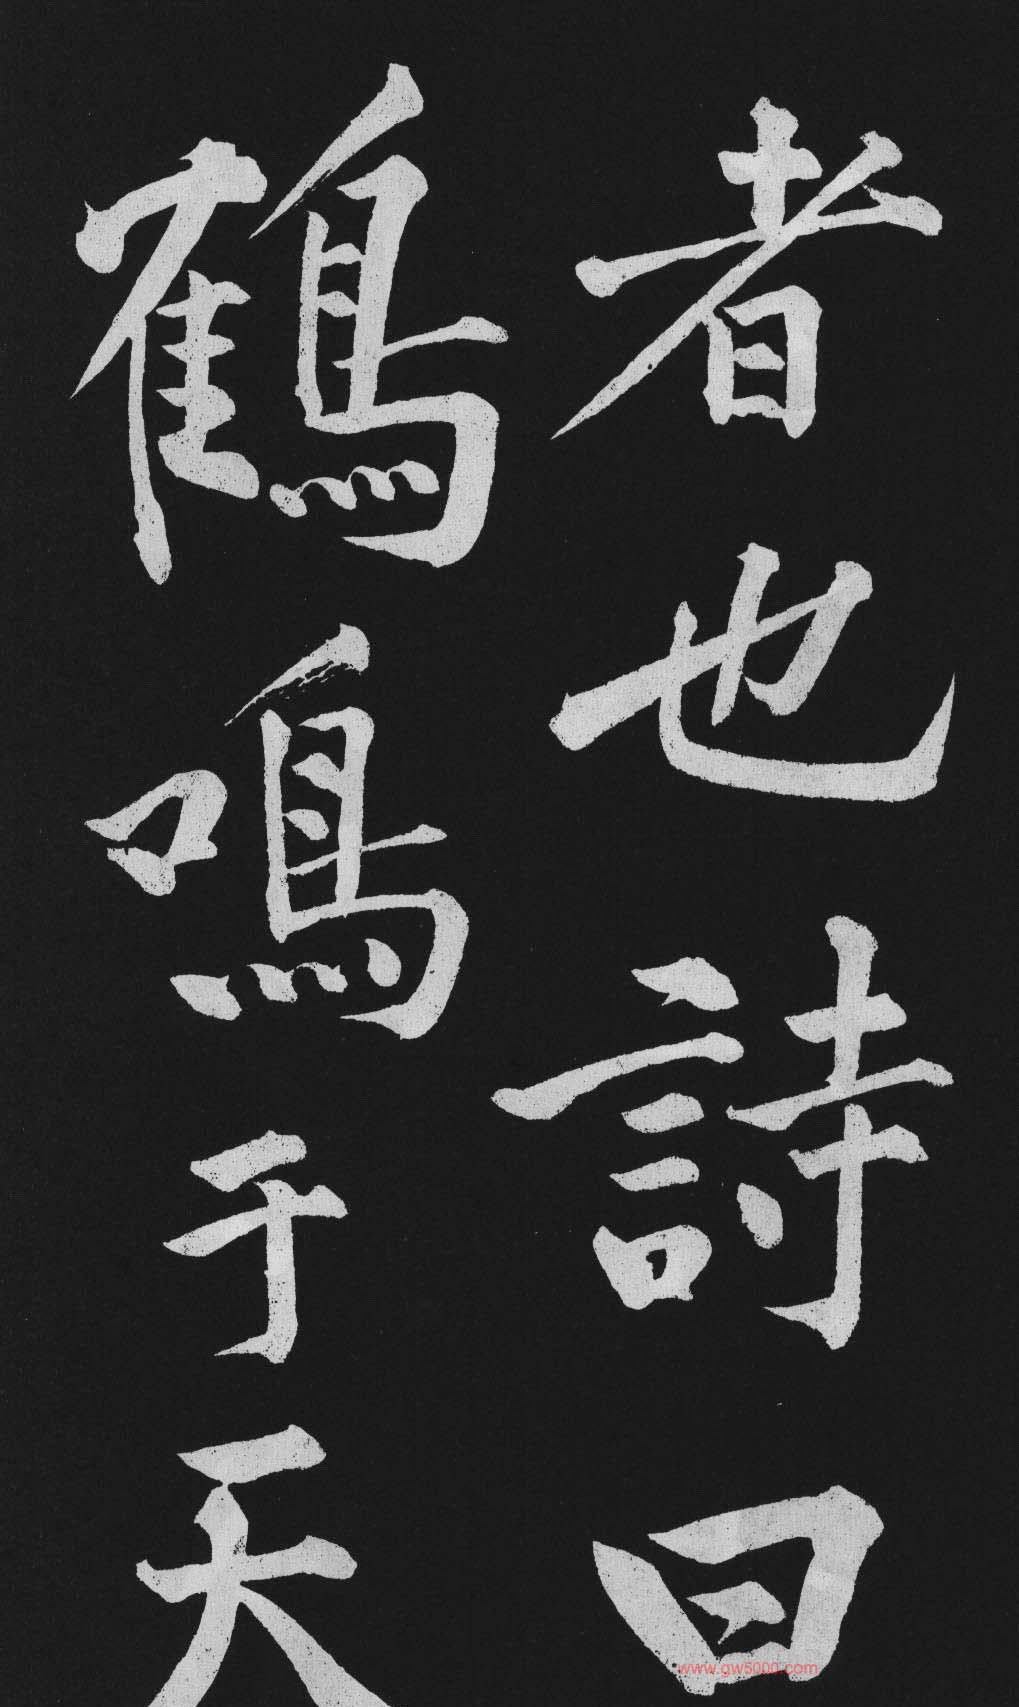 者也詩曰
鶴鳴于天
www.gw5000.com